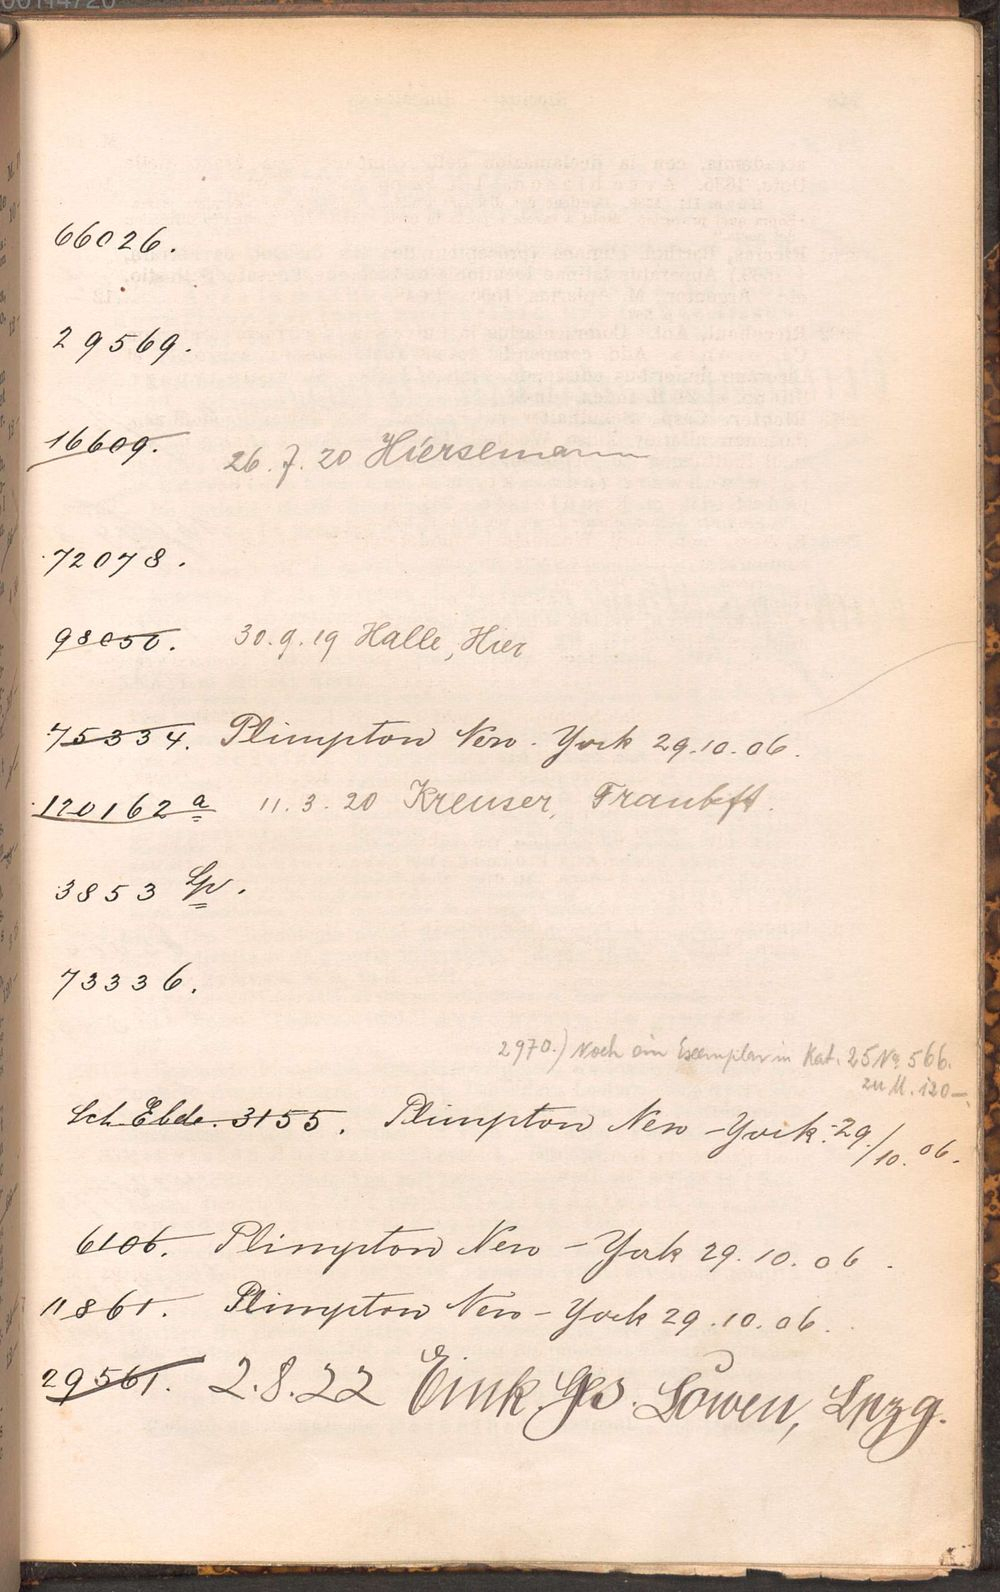 66026.
29569.
16609. 26.7.20 Hiersemann
72078.
98050. 30.9.19 Halle, Hier
75334. Plimpton New-York 29.10.06.
120162a 11.3.20 Kreuser,
3853
73336.
2970.) Noch ein Exemplar in Kat. 25 No 566.
zu M. 120—.
Sch Ebde. 3155. Plimpton New-York. 29/10.06.
6106. Plimpton New-York 29.10.06.
11861. Plimpton New-York 29.10.06.
29561. 2.8.22 Eink. Ges. Löwen, Lpzg.